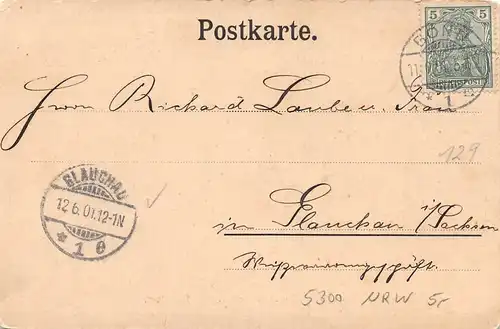 Postkarte.
5
BONN
REICHSPOST
* 1
Herrn Richard Laube u. Frau
129
GLAUCHAU
12.6.01.12-1N
* 1 e
in Glauchau i/Sachsen
5300 NRW 5,-